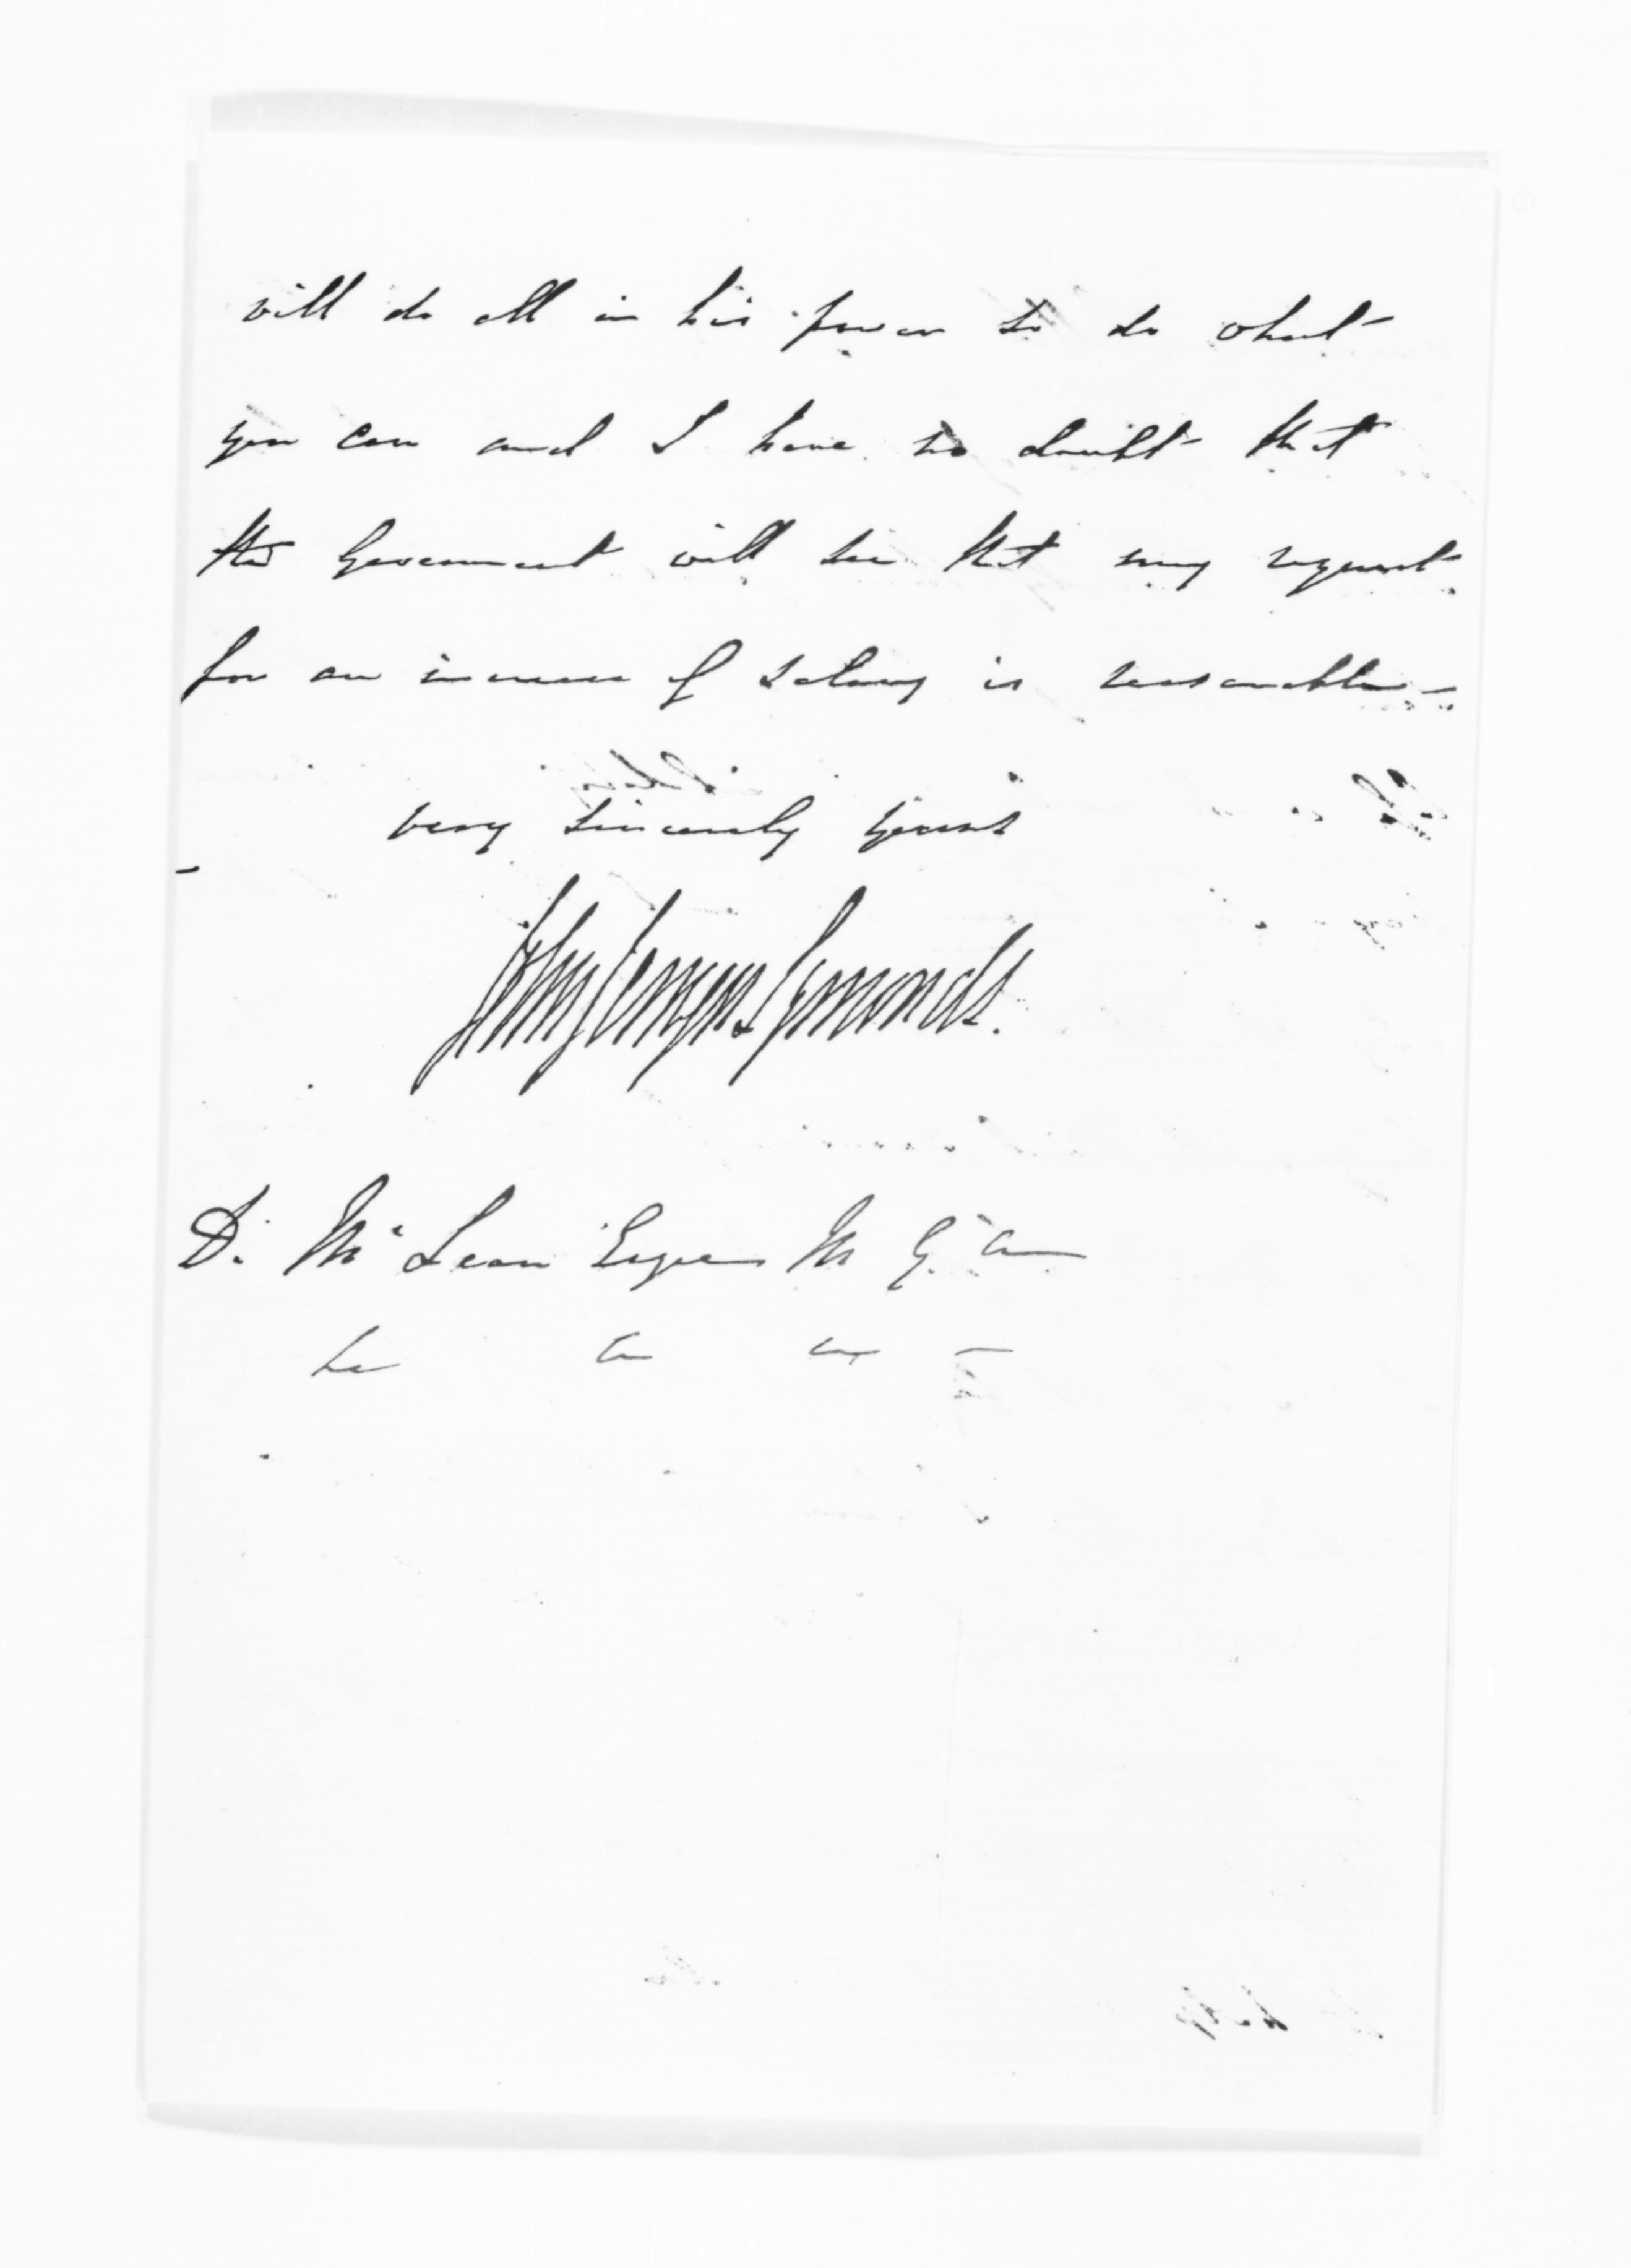 will do all in his power to do what
you can and I have no doubt that
the Government will see that my request
for an increase of salary is reasonable —
very sincerely yours
John Jermyn Symonds.
D. McLean Esqre M G A